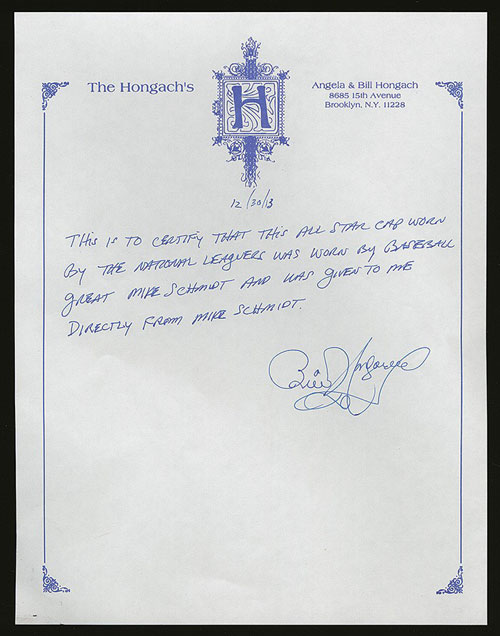 The Hongach's
H
Angela & Bill Hongach
8685 15th Avenue
Brooklyn, N.Y. 11228
12/30/13
THIS IS TO CERTIFY THAT THIS ALL STAR CAP WORN
BY THE NATIONAL LEAGUERS WAS WORN BY BASEBALL
GREAT MIKE SCHMIDT AND WAS GIVEN TO ME
DIRECTLY FROM MIKE SCHMIDT.
Bill Hongach